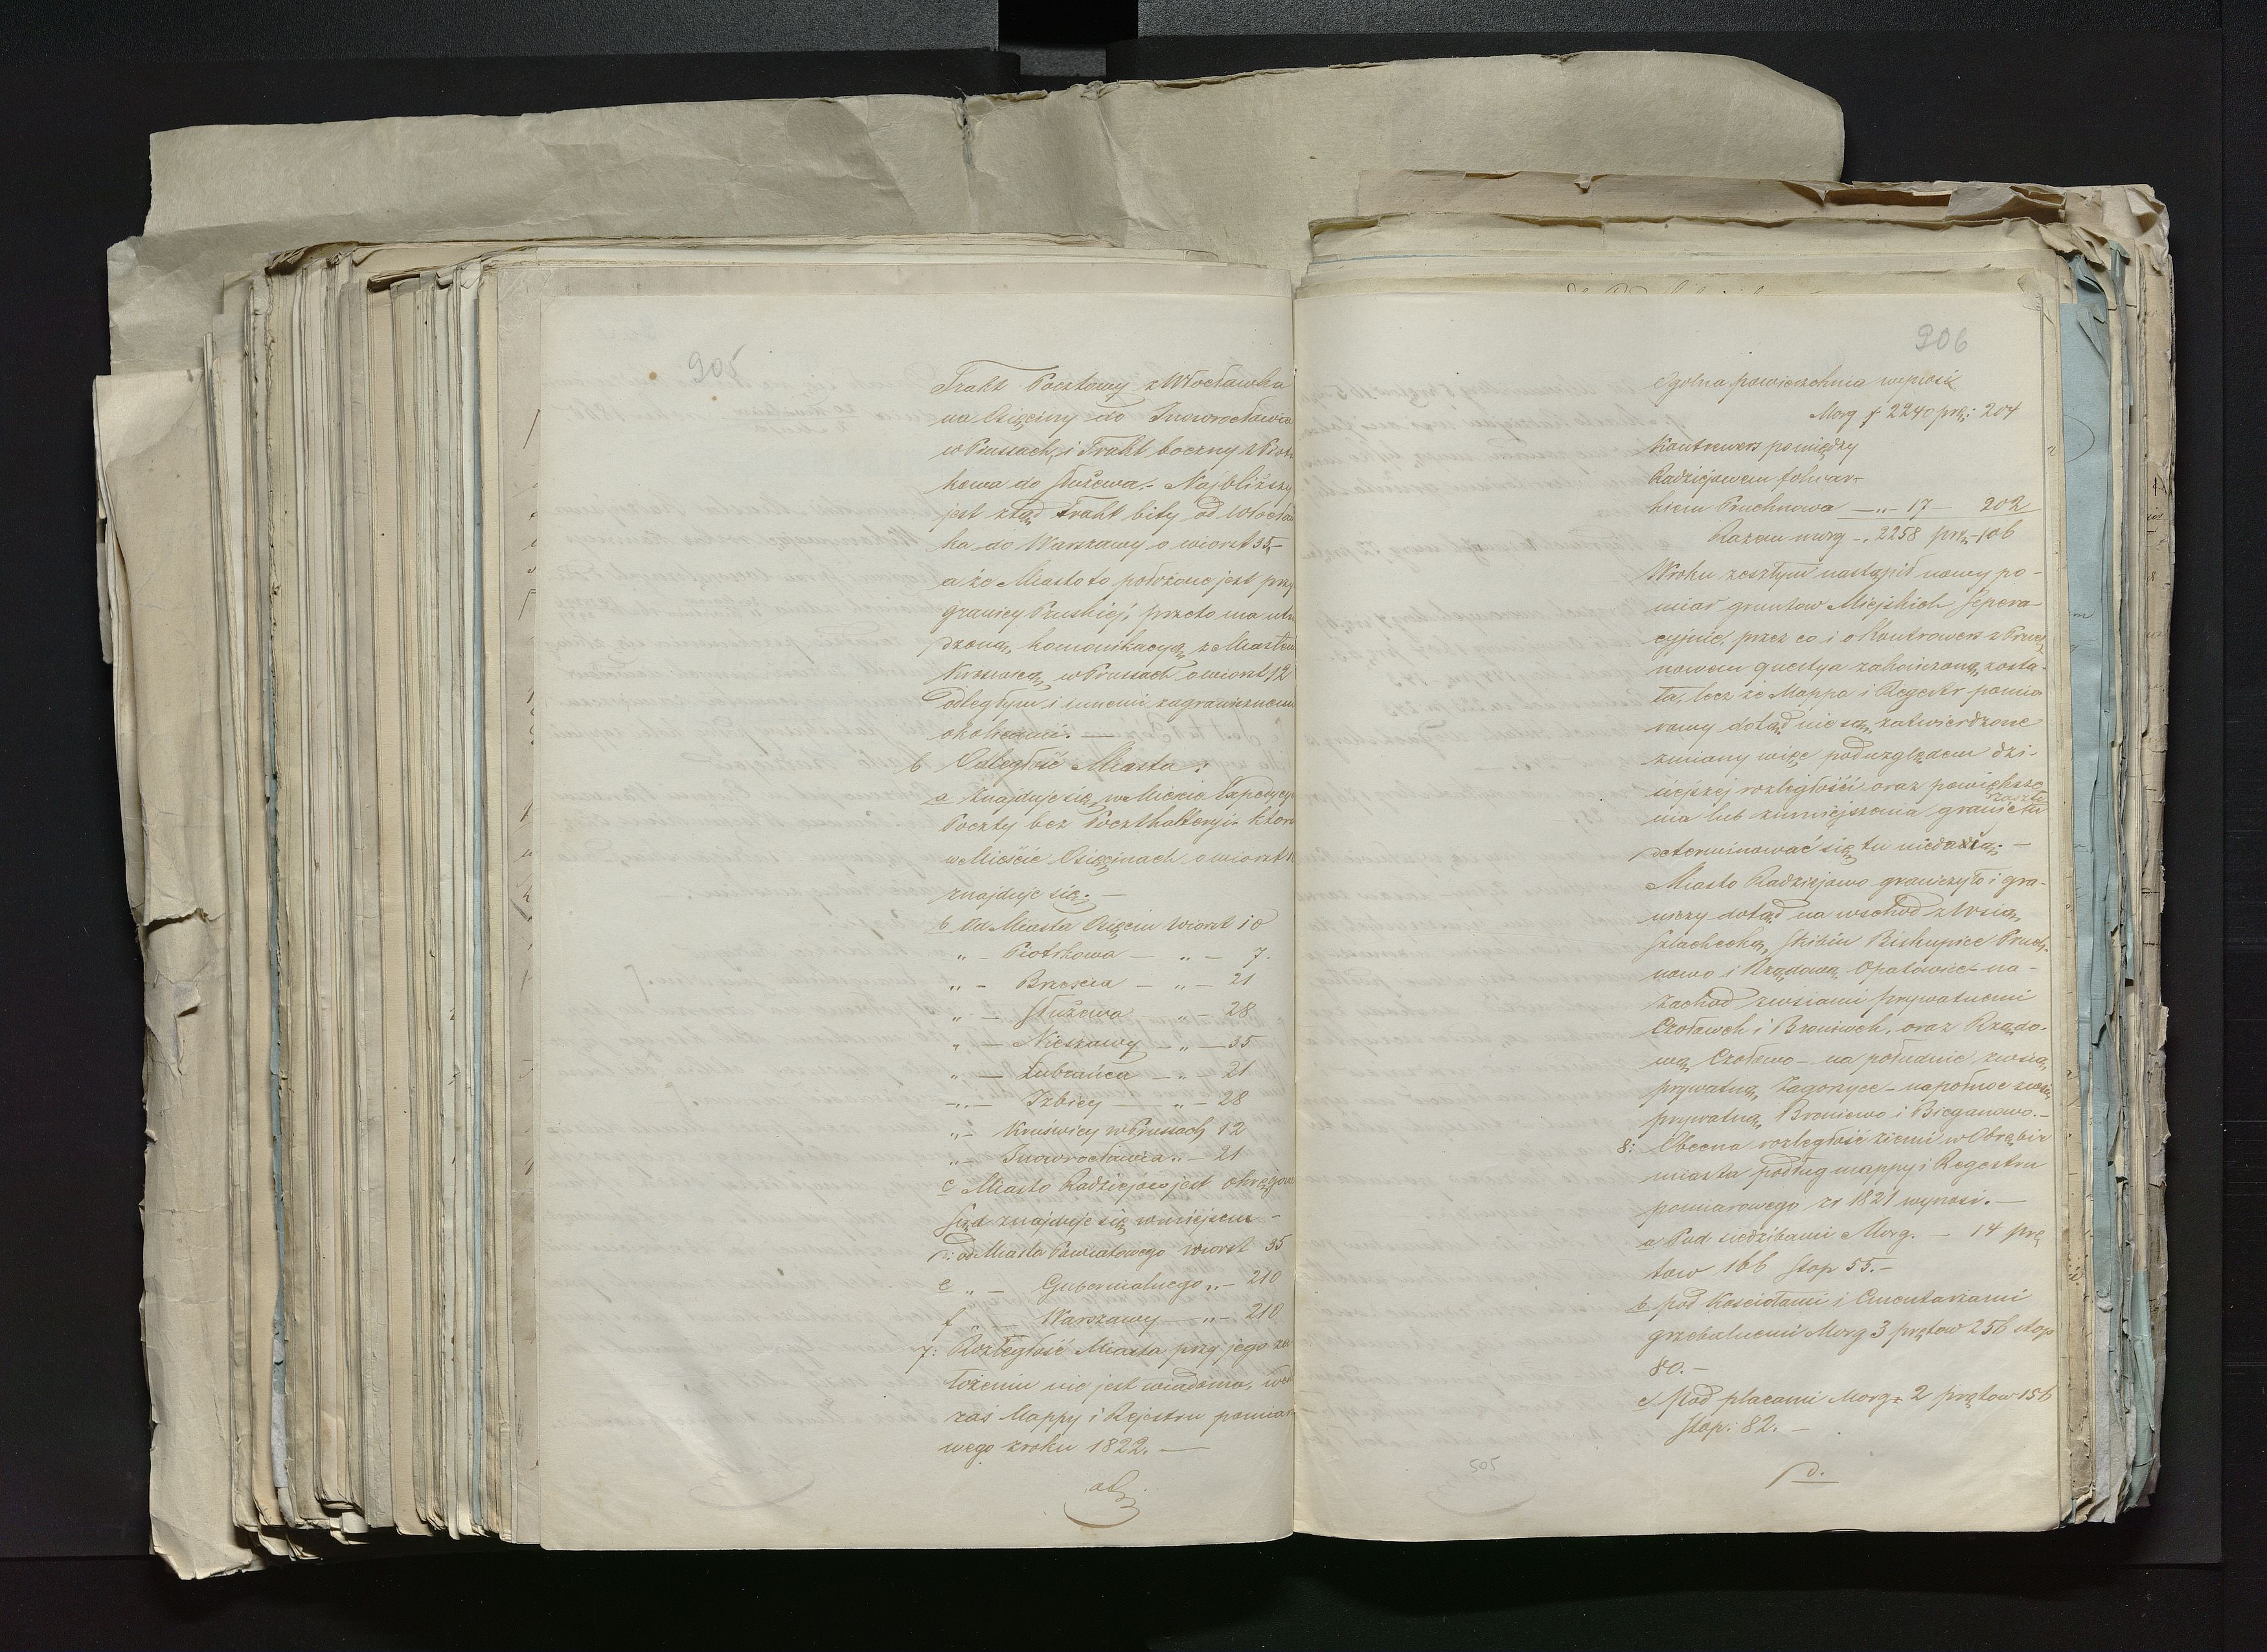 905
Trakt Pocztowy z Włocławka
na Osięciny do Inowrocławia
w Prussach, i Trakt boczny z Piotr
kowa do Służewa.- Najbliższy
jest ztąd Trakt bity od Włocław
ka do Warszawy o wiorst 35,-
a że Miasto to położone jest przy
granicy Pruskiej, przeto ma utru
dzoną, komonikacyą, z Miastem
Kruswicą w Prussach o wiorst 12
odległym i innemi zagranicznemi
okolicami. —
6 Odległość Miasta:
a Znajduje się w Mieście Expedycya
Poczty bez Poczthalteryi która
w Mieście Osięcinach o wiorst 1
znajduje się. —
b od Miasta Osięcin wiorst 10
„ - Piotrkowa — „ — 7.
„ - Brześcia — „ — 21
„ — Służewa — „ — 28
„ — Nieszawy — „ — 35
„ — Lubrańca — „ — 21
-„- Izbicy — „ — 28
„- Kruświcy w Prussach 12
„- Inowrocławia „ - 21
c Miasto Radziejow jest okręgowe
Sąd znajduje się w miejscu -
d: od Miasta Powiatowego wiorst 35
e „ — Gubernialnego „ - 210
f „ — Warszawy — „ - 210
7: Rozległość Miasta przy jego za
łożeniu nie jest wiadoma, wedł
zaś Mappy i Rejestru pomiaro
wego z roku 1822. —
906
Ogolna powierzchnia wynosi
Morg f 2240 prę: 204
Kontrowers pomiędzy
Radziejowem folwar-
kiem Pruchnowa — „ - 17 — 202
Razem morg -. 2258 prę,- 106
W roku zeszłym nastąpił nowy po-
miar gruntow Miejskich Sepera-
cyjnie, przez co i o Kontrowers z Pruch
nowem questya zakończoną zosta-
ła, lecz że Mappa i Regestr pomia
rowy dotąd nie są, zatwierdzone
zmiany więc pod względem dzi-
siejszej rozległości oraz powiększe
nia lub zmniejszenia granic tu
determinować się tu niedadzą. —
Miasto Radziejowo graniczyło i gra-
niczy dotąd na wschod z Wsią,
Szlachecką, Skibin Biskupice Pruch-
nowo i Rządową Opatowice - na-
zachod z wsiami prywatnemi
Czołowek i Broniewek, oraz Rządo-
wą, Czołowo - na południe z wsią,
prywatną, Zagorzyce - na połnoc z wsią,
prywatną, Broniewo i Bieganowo.-
8: Obecna rozległość ziemi w Obrębie
miasta podług mappy i Regestru
pomiarowego z r 1821 wynosi. —
a Pod siedzibami Morg. — 14 prę
tow 166 Stop 55.-
b pod Kościołami i Cmentarzami
grzebalnemi Morg 3 prętow 256 stop
80.-
c Pod placami Morg- 2 prętow 156
Stop: 82. —
d.
505